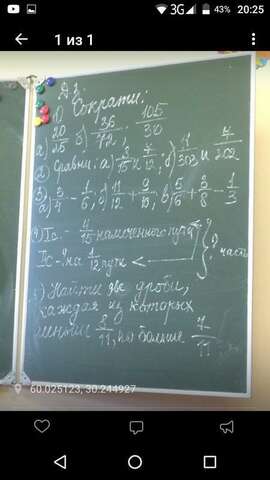 20:25
3G 43%
1 из 1
Д.З.
1) Сократи:
а) 20/25 б) 36/72; 105/30
2) Сравни: а) 8/15 и 7/12; б) 4/303 и 7/202
3) а) 3/4 - 1/6; б) 11/12 + 9/13; в) 5/6 + 3/8 - 1/3
4) Iс. - 4/15 намеченного пути
IIс - ? на 1/12 пути < ? часть
5) Найти две дроби,
каждая из которых
меньше 8/11, но больше 7/11
60.025123, 30.244927